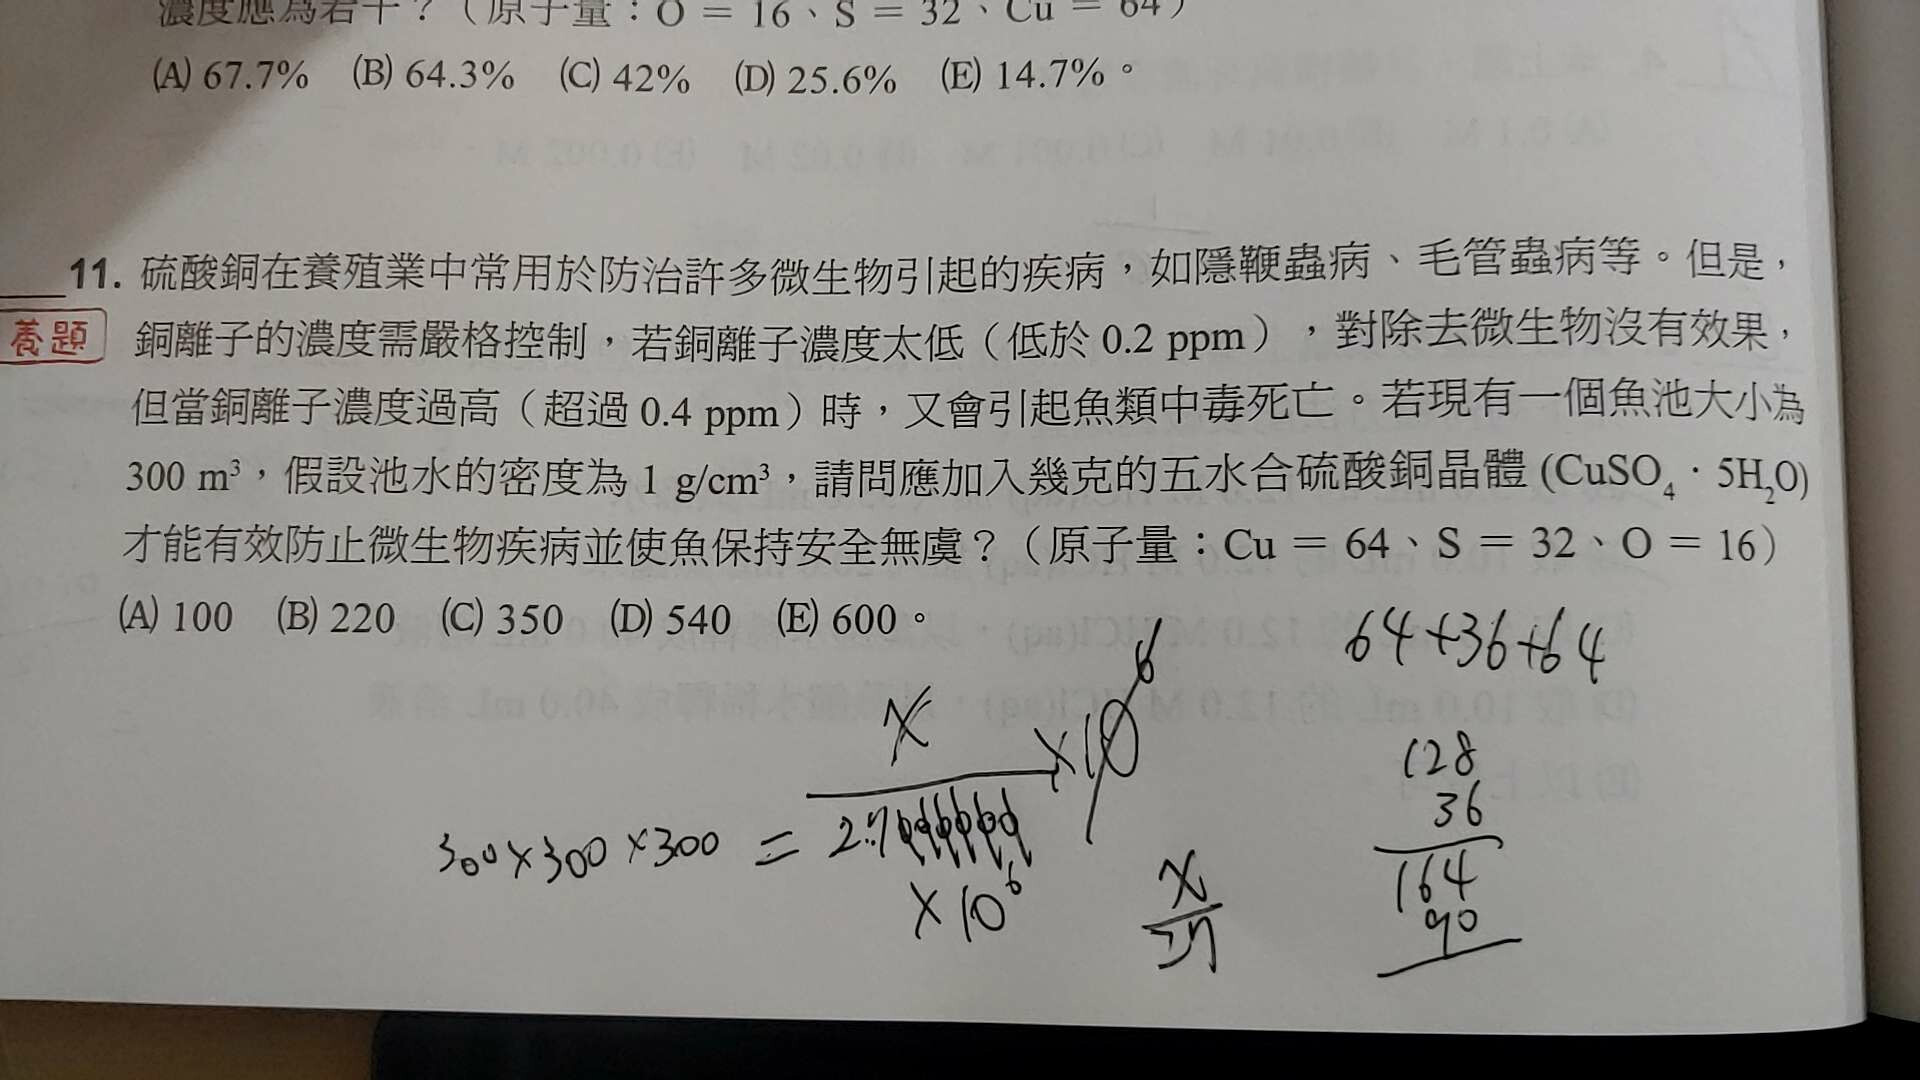 濃度應為若干？（原子量：O = 16、S = 32、Cu = 64）
(A) 67.7% (B) 64.3% (C) 42% (D) 25.6% (E) 14.7%。
11. 硫酸銅在養殖業中常用於防治許多微生物引起的疾病，如隱鞭蟲病、毛管蟲病等。但是，
銅離子的濃度需嚴格控制，若銅離子濃度太低（低於 0.2 ppm），對除去微生物沒有效果，
但當銅離子濃度過高（超過 0.4 ppm）時，又會引起魚類中毒死亡。若現有一個魚池大小為
300 m³，假設池水的密度為 1 g/cm³，請問應加入幾克的五水合硫酸銅晶體 (CuSO₄．5H₂O)
才能有效防止微生物疾病並使魚保持安全無虞？（原子量：Cu = 64、S = 32、O = 16）
(A) 100 (B) 220 (C) 350 (D) 540 (E) 600。
64+36+64
x
×10⁶
300×300×300 =
×10⁶
x
27
128
36
164
90